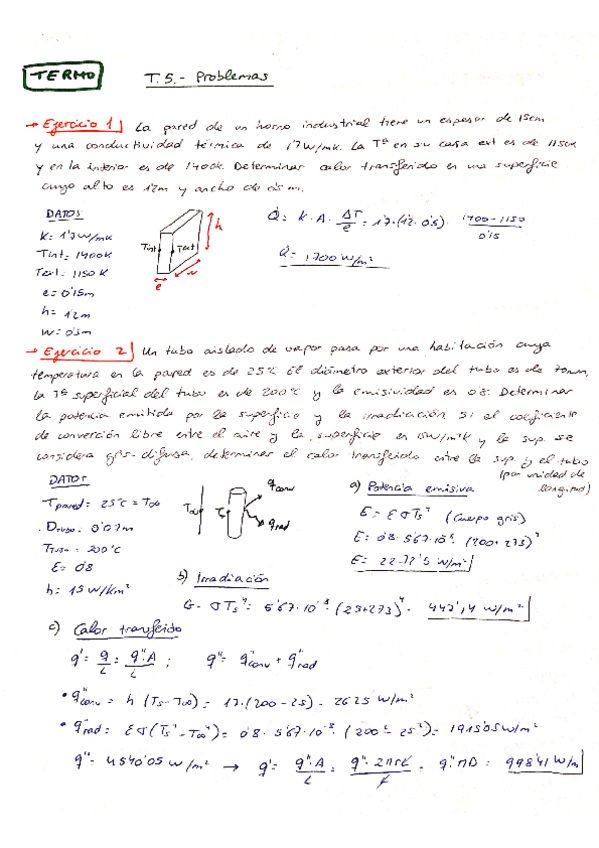 TERMO
T.5.- Problemas
→ Ejercicio 1 La pared de un horno industrial tiene un espesor de 15cm
y una conductividad térmica de 1'7 W/mK. La Tª en su cara ext es de 1150K
y en la interior es de 1400K. Determinar calor transferido en una superficie
cuyo alto es 1'2m y ancho de 0'5 m.
DATOS
K = 1'7 W/mK
Tint = 1400K
Text = 1150 K
e = 0'15m
h = 1'2m
w = 0'5m
Tint Text h w e
Q̇ = K · A · ΔT/e = 1'7·(1'2·0'5) · 1400-1150/0'15
Q̇ = 1700 W/m²
→ Ejercicio 2 Un tubo aislado de vapor pasa por una habitación cuya
temperatura en la pared es de 25°C El diámetro exterior del tubo es de 70mm,
la Tª superficial del tubo es de 200°C y la emisividad es 0'8. Determinar
la potencia emitida por la superficie y la irradiación si el coeficiente
de convección libre entre el aire y la superficie es 15W/m²K y la sup. se
considera gris-difusa, determinar el calor transferido entre la sup. y el tubo
(por unidad de longitud)
DATOS
Tpared = 25°C = T∞
Dtubo = 0'07m
= 200°C
ε = 0'8
h = 15 W/Km²
T∞ Ts q''conv q''rad
a) Potencia emisiva
E = εσTs⁴ (Cuerpo gris)
E = 0'8 · 5'67·10⁻⁸ · (200+273)⁴
E = 22.72'5 W/m²
b) Irradiación
G = σTs⁴ = 5'67·10⁻⁸ (25+273)⁴ = 447'14 W/m²
c) Calor transferido
q' = q/L = q''·A/L ; q'' = q''conv + q''rad
• q''conv = h (Ts-T∞) = 15·(200-25) = 2625 W/m²
• q''rad = εσ(Ts⁴-T∞⁴) = 0'8 · 5'67·10⁻⁸ · (200⁴-25⁴) = 1915'05 W/m²
q'' = 4540'05 W/m² → q' = q''·A/L = q''·2πrL/L = q''·πD = 998'41 W/m